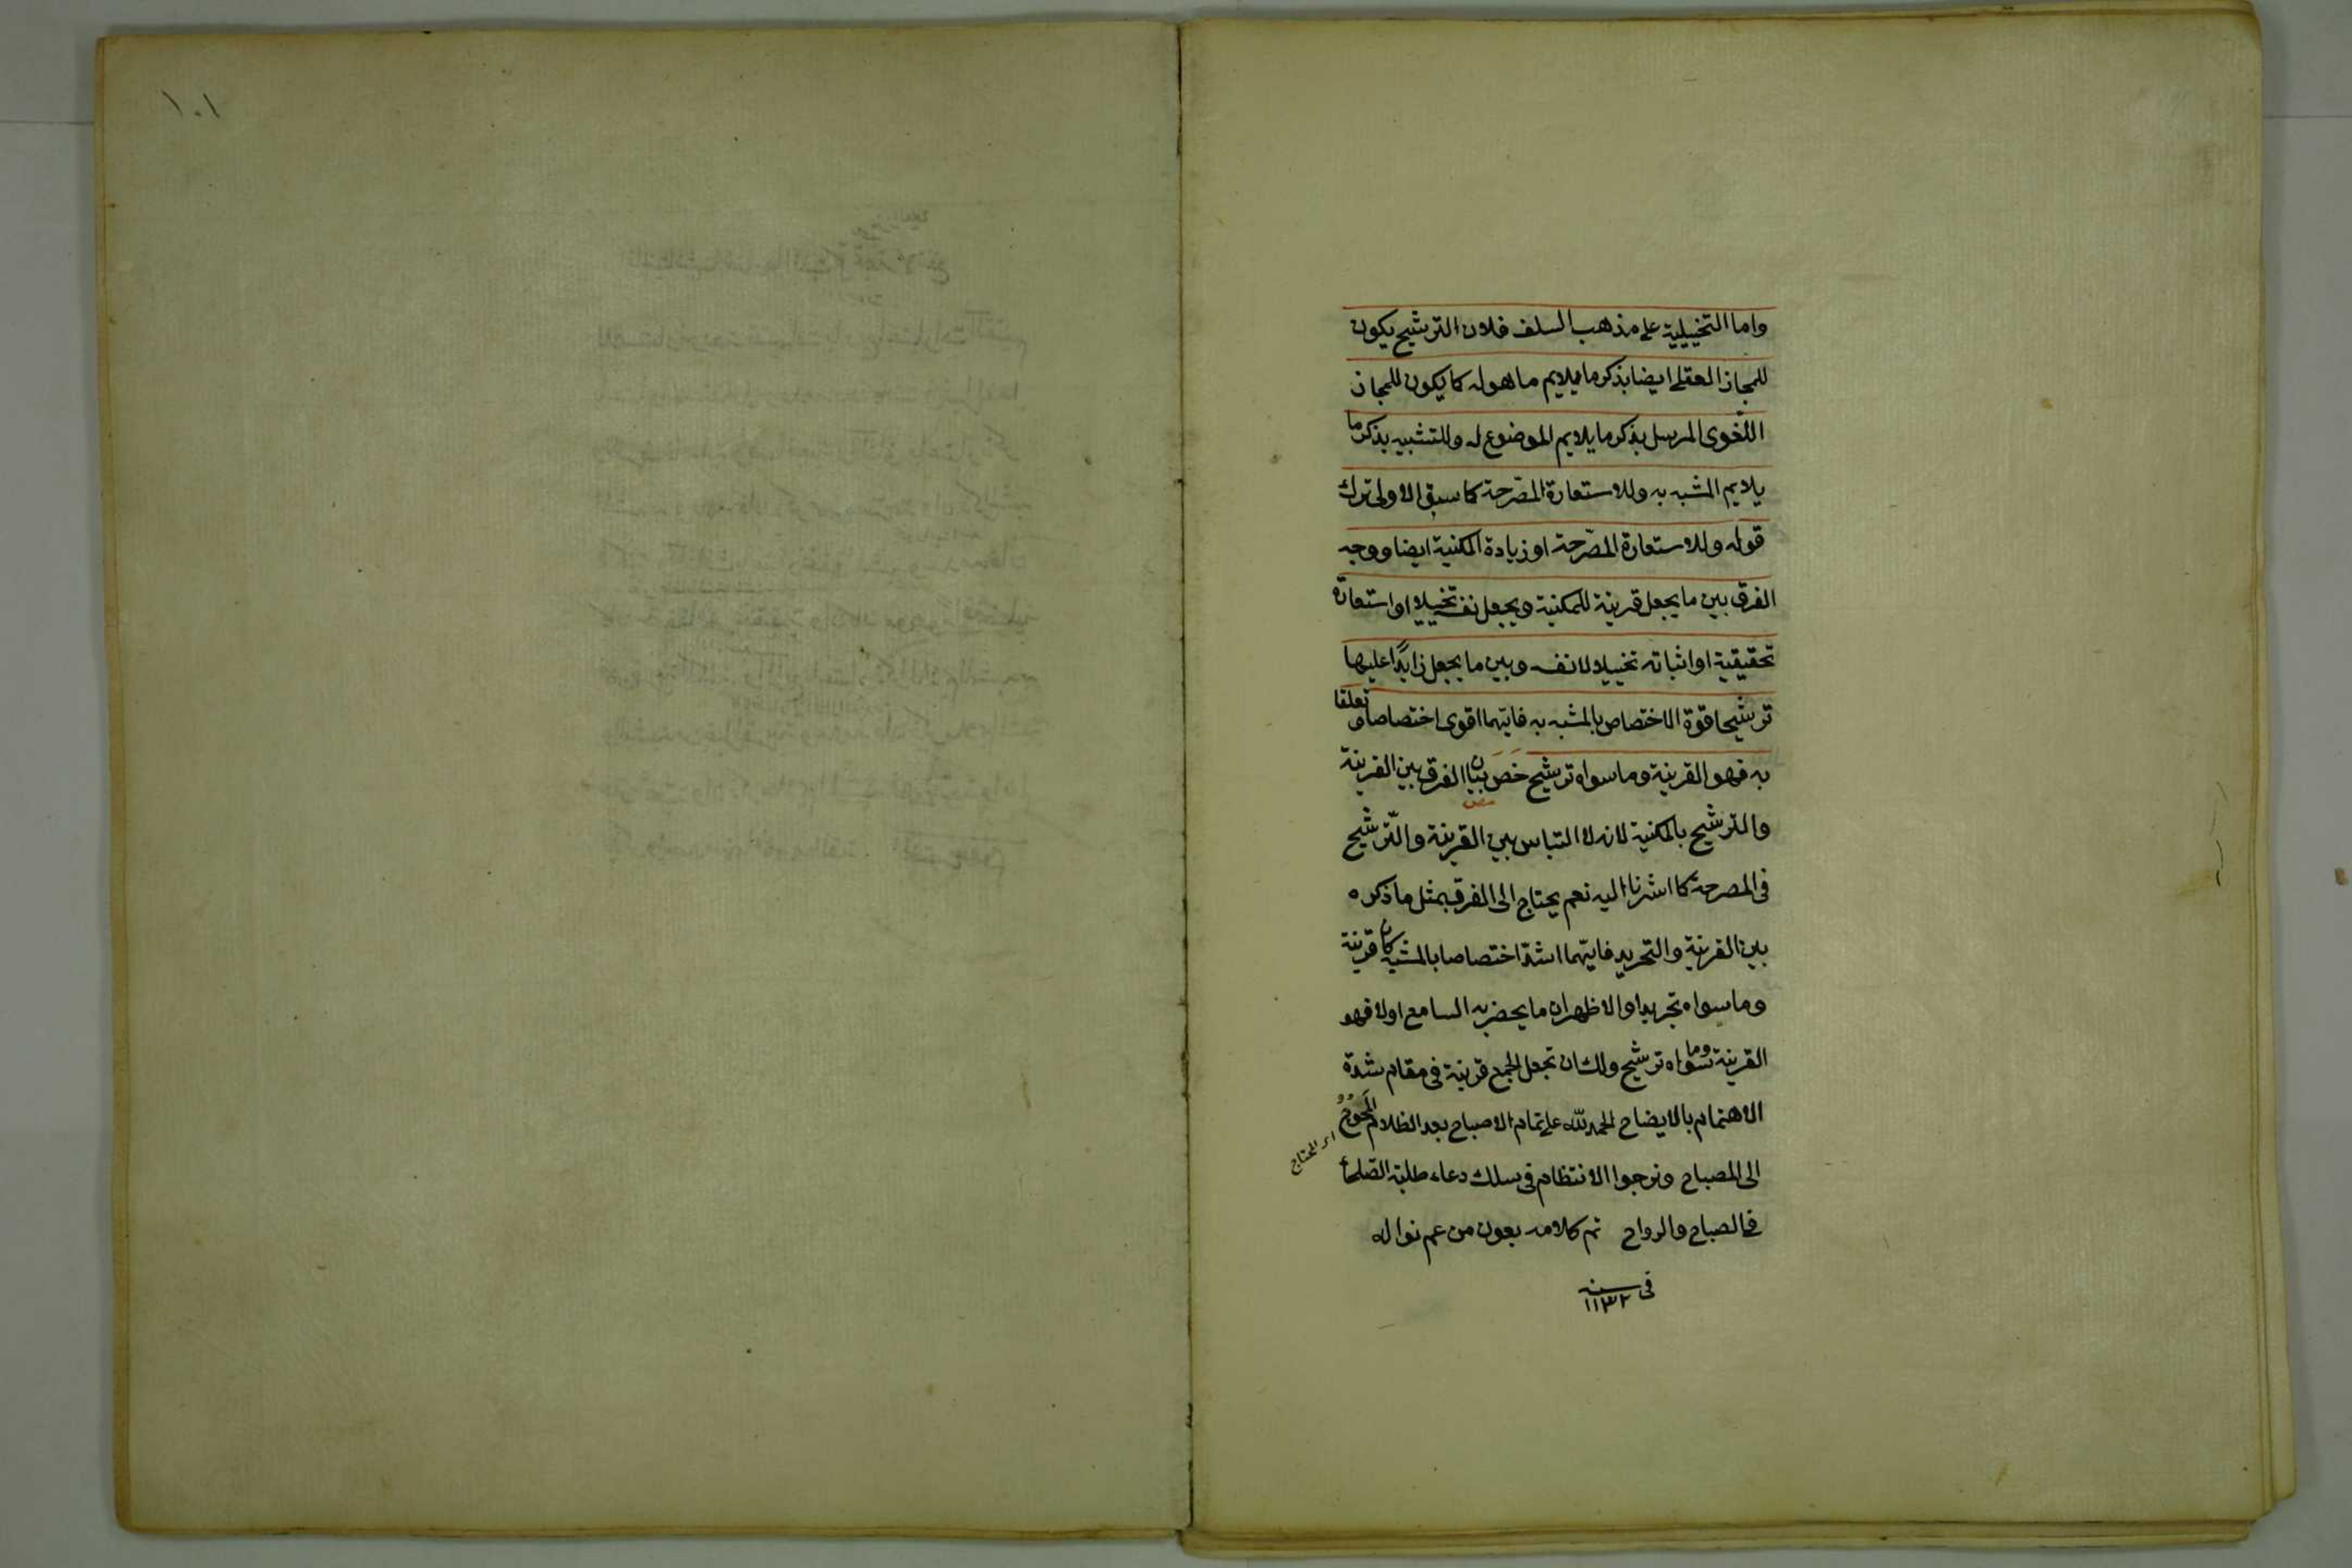 واما التخييلية على مذهب السلف فلان الترشيح يكون
للمجاز العقلى ايضا بذكر ما يلايم ما هو له كما يكون للمجاز
اللغوى المرسل بذكر ما يلايم الموضوع له وللتشبيه بذكر ما
يلايم المشبه به وللاستعارة المصرحة كما سبق الاولى ترك
قوله وللاستعارة المصرحة او زيادة المكنية ايضا ووجه
الفرق بين ما يجعل قرينة للمكنية ويجعل نفسه تخييلا او استعارة
تحقيقية او اثباته تخييلا لا نفسه وبين ما يجعل زايدا عليها
ترشيحا قوة الاختصاص بالمشبه به فايهما اقوى اختصاصا وتعلقا
به فهو القرينة وما سواه ترشيح خص بيان الفرق بين القرينة
والترشيح بالمكنية لانه لا التباس بين القرينة والترشيح
فى المصرحة كما اشرنا اليه نعم يحتاج الى الفرق بمثل ما ذكره
بين القرينة والتجريد فايهما اشد اختصاصا بالمشبه كان قرينة
وما سواه تجريدا والاظهر ان ما يحضر به السامع اولا فهو
القرينة وما سواه ترشيح ولك ان تجعل الجميع قرينة فى مقام شدة
الاهتمام بالايضاح الحمد لله على تمام الاصباح بعد الظلام المحوج
اى المحتاج
الى المصباح ونرجوا الانتظام فى سلك دعاء طلبة الصلحاء
فى الصباح والرواح تم كلامه بعون من عم نواله
فى سنه
١١٣٢
١٠١